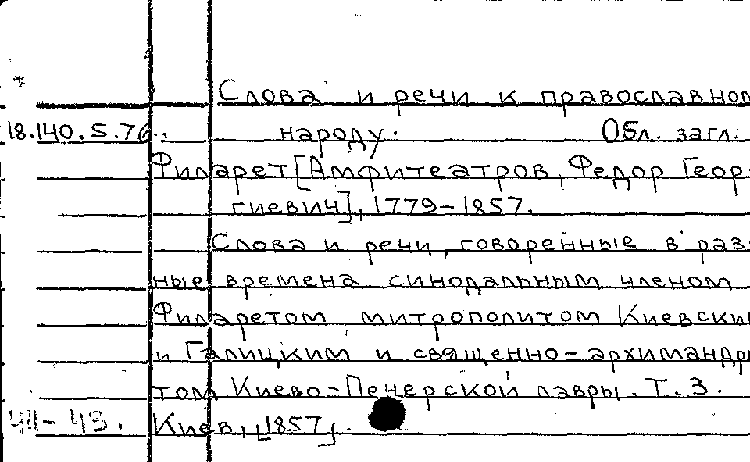 Слова и речи к православном
18.140.5.76. народу. Обл. загл.
Филарет [Амфитеатров, Федор Геор-
гиевич], 1779-1857.
Слова и речи, говоренные в раз-
ные времена синодальным членом
Филаретом митрополитом Киевски
и Галицким и священно-архимандри
том Киево-Печерской лавры. Т. 3.
Киев, [1857].